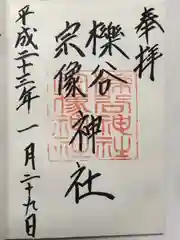 奉拝
櫟谷
宗像神社
平成二十三年一月二十九日